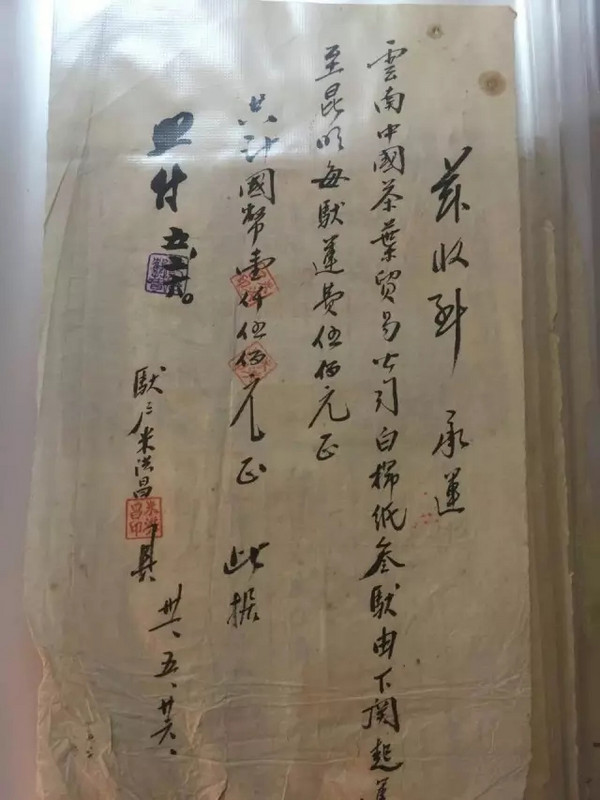 茲收到 承運
雲南中國茶葉貿易公司白棉紙叁馱由下關起運
至昆明每馱運費伍佰元正
共計國幣壹仟伍佰元正 此據
照付
馱户米洪昌具
米洪昌印
卅一、五、廿六、